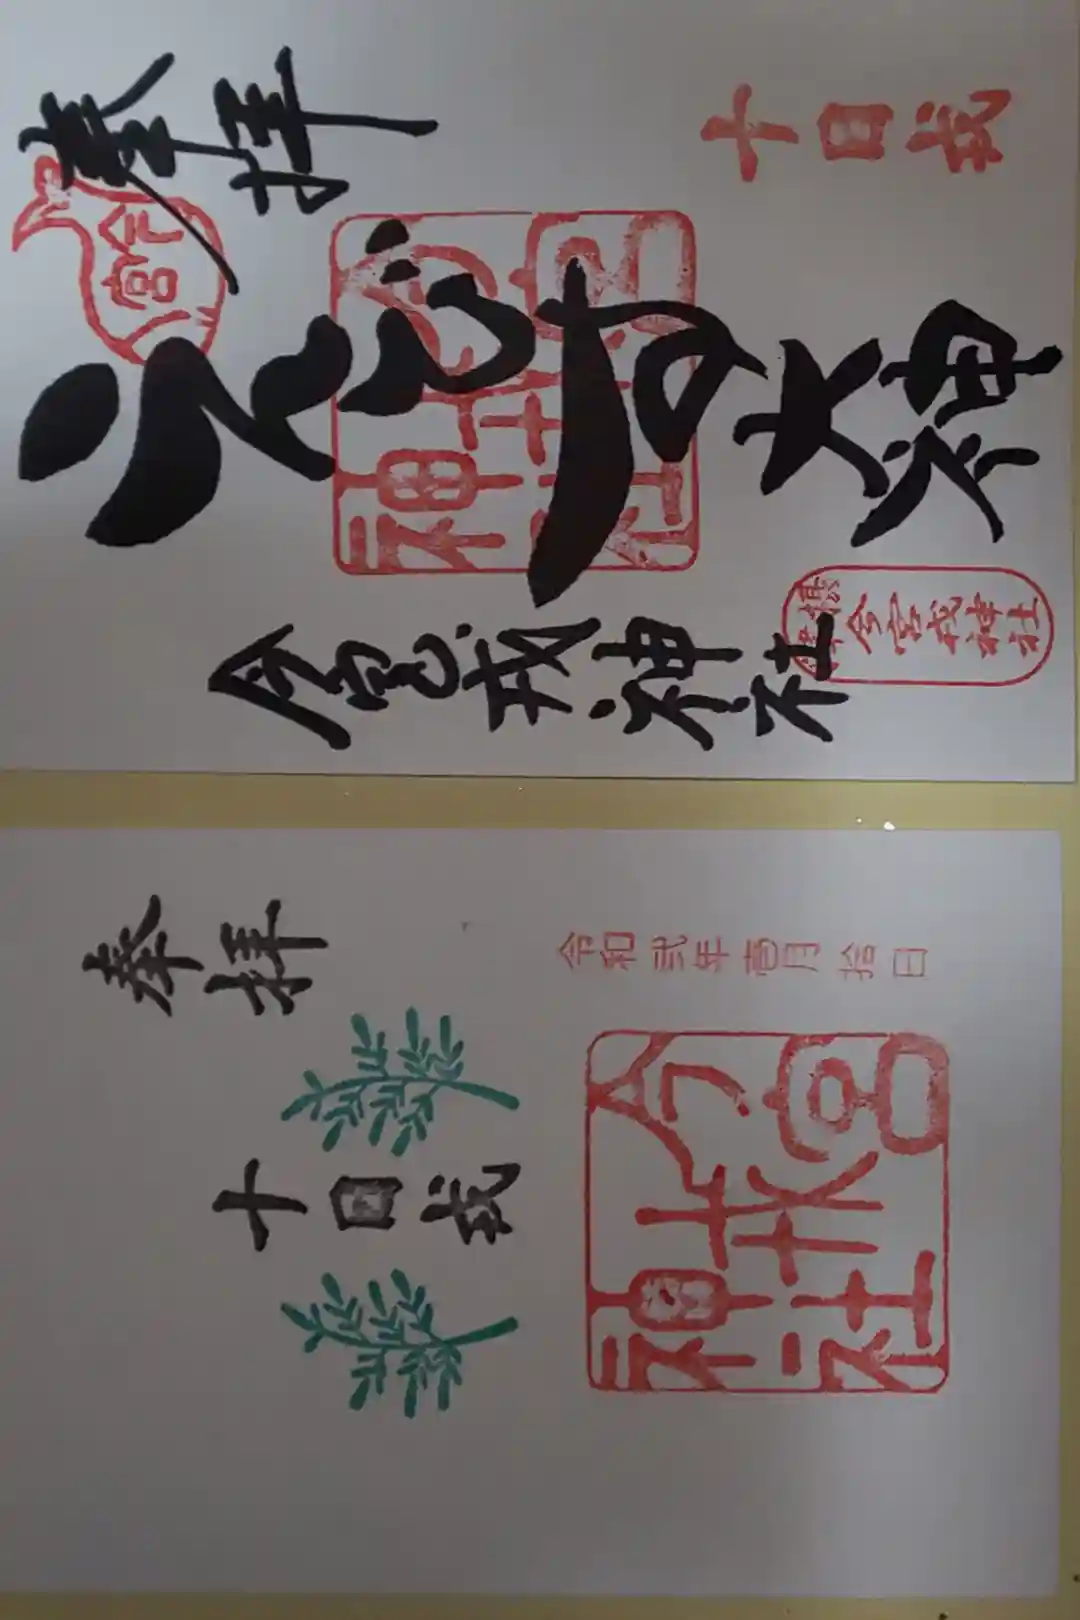 奉拝
十日戎
今宮
えびす大神
今宮戎神社
今宮戎神社
今宮戎神社
奉拝
令和弐年壱月拾日
十日戎
今宮戎神社